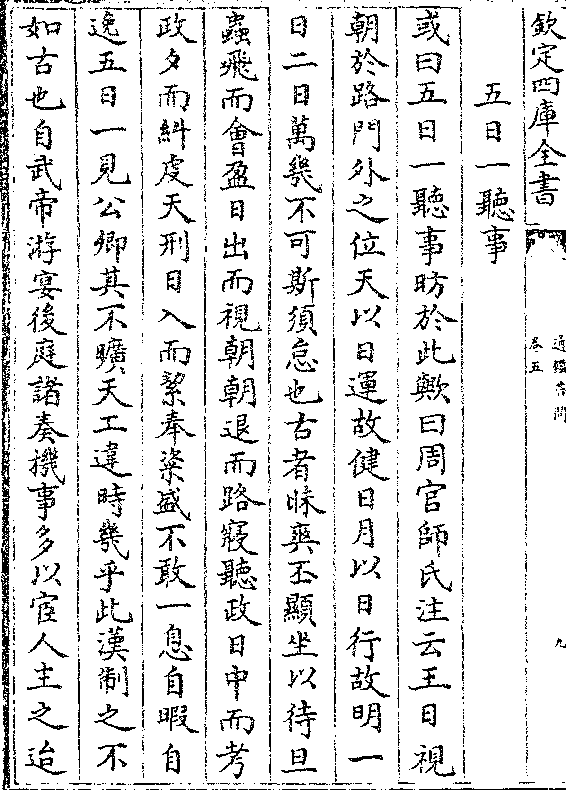 欽定四庫全書
通鑑答問
卷五
九
五日一聽事
或曰五日一聽事昉於此歟曰周官師氏注云王日視
朝於路門外之位天以日運故健日月以日行故明一
日二日萬幾不可斯須怠也古者昧爽丕顯坐以待旦
蟲飛而會盈日出而視朝朝退而路寢聽政日中而考
政夕而糾虔天刑日入而絜奉粢盛不敢一息自暇自
逸五日一見公卿其不曠天工違時幾乎此漢制之不
如古也自武帝游宴後庭諸奏機事多以宦人主之迨